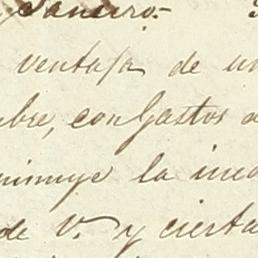 Janeiro.-
ventaja de un
bre, con Gastos
minuye la
de V. y cierta